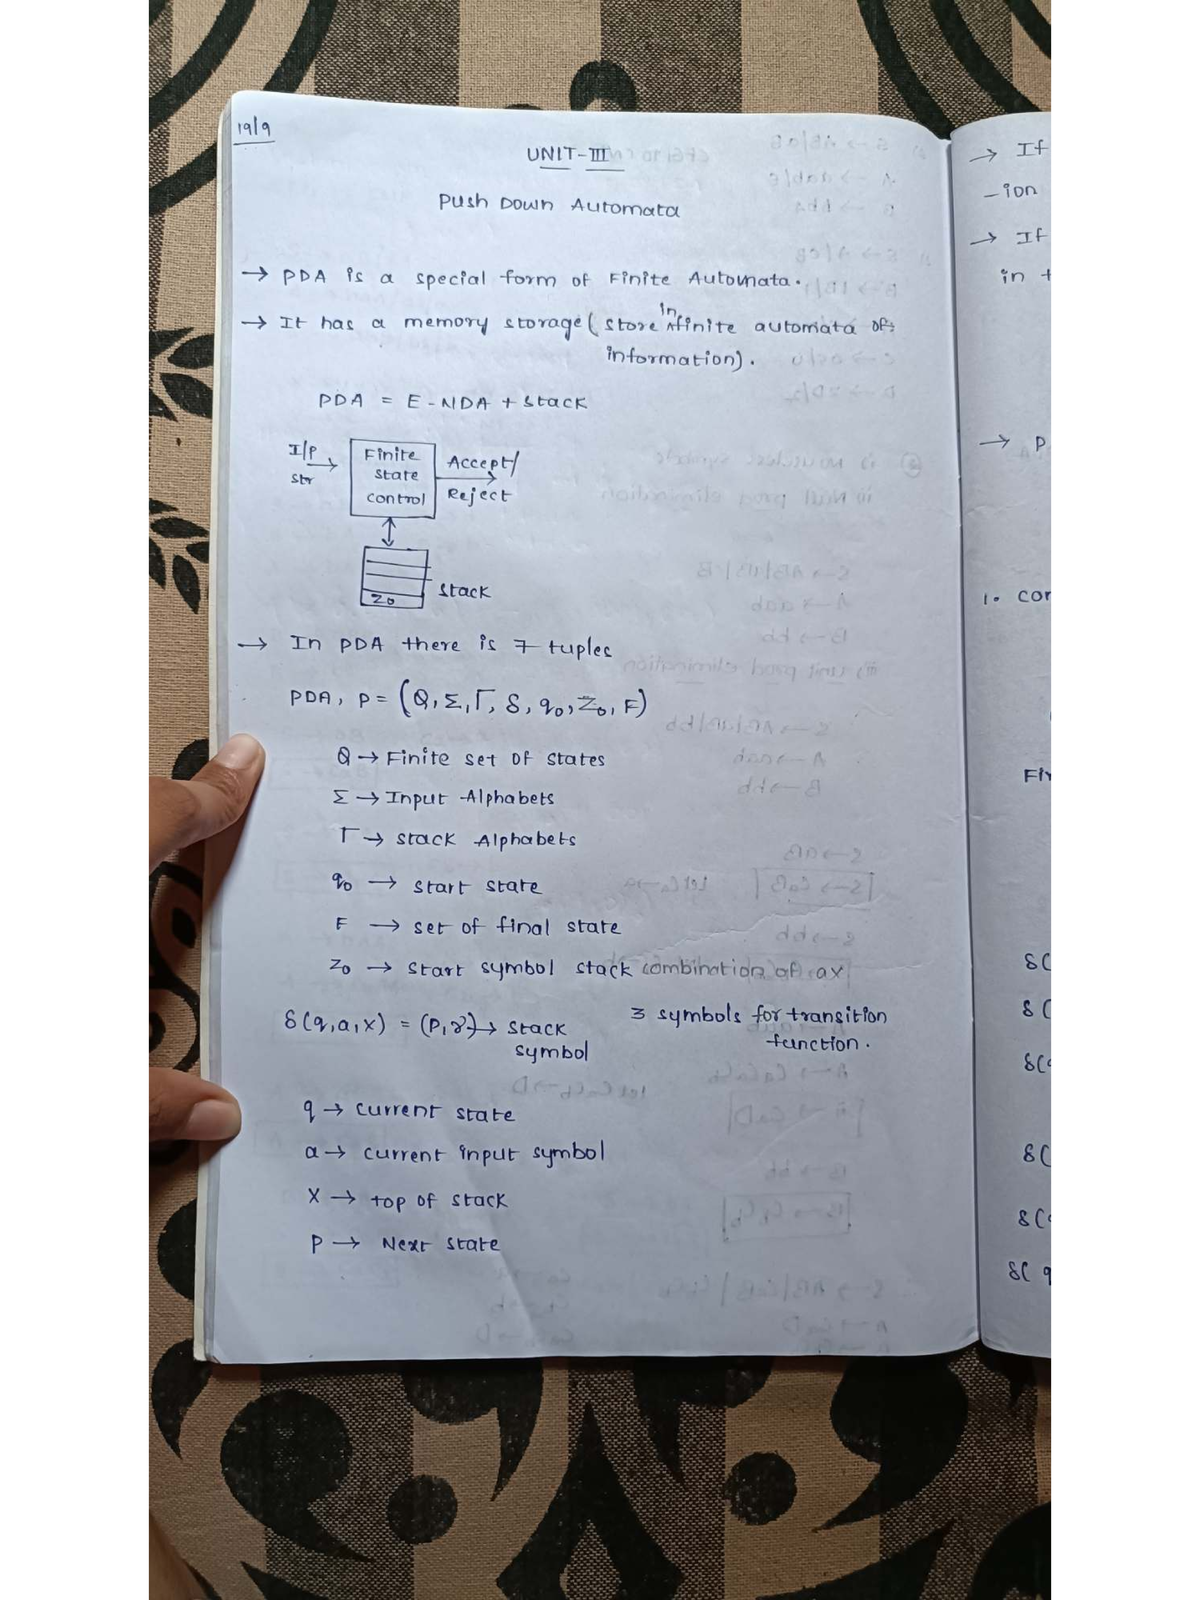 19/9
UNIT-III
Push Down Automata
→ PDA is a special form of Finite Automata.
→ It has a memory storage (store infinite automata of
information).
PDA = E-NDA + Stack
I/P
Str
Finite
State
control
Accept/
Reject
Z₀
Stack
→ In PDA there is 7 tuples
PDA, P = (Q, Σ, Γ, δ, q₀, Z₀, F)
Q → Finite set of states
Σ → Input Alphabets
Γ → Stack Alphabets
q₀ → Start state
F → set of final state
Z₀ → Start symbol stack combination of ax
δ(q,a,x) = (P,γ) → Stack
symbol
3 symbols for transition
function.
q → current state
a → current input symbol
X → top of stack
P → Next state
→ If
-ion
→ If
in t
→ P
1. con
Fi
δ(
δ(
δ(
δ(
δ(
δ( q